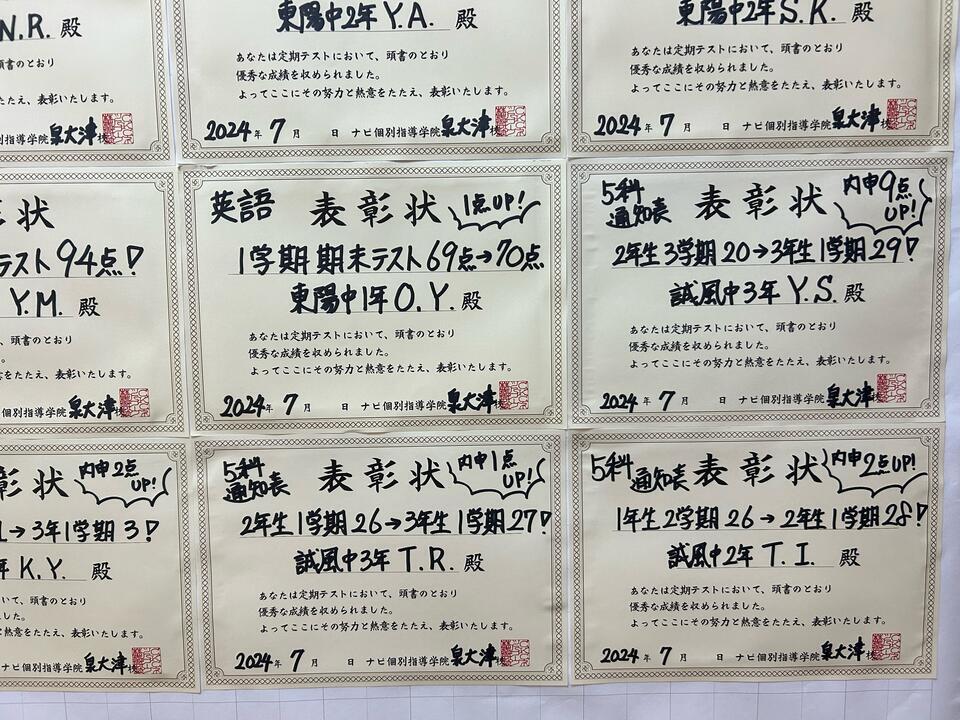 N.R. 殿
頭書のとおり
たたえ、表彰いたします。
個別指導学院 泉大津校
東陽中2年 Y.A. 殿
あなたは定期テストにおいて、頭書のとおり
優秀な成績を収められました。
よってここにその努力と熱意をたたえ、表彰いたします。
2024年 7月 日 ナビ個別指導学院 泉大津校
東陽中2年 S.K. 殿
あなたは定期テストにおいて、頭書のとおり
優秀な成績を収められました。
よってここにその努力と熱意をたたえ、表彰いたします。
2024年 7月 日 ナビ個別指導学院 泉大津校
状
テスト94点!
Y.M. 殿
、頭書のとおり
た。
をたたえ、表彰いたします。
個別指導学院 泉大津校
英語 表彰状 1点UP!
1学期期末テスト69点→70点
東陽中1年 O.Y. 殿
あなたは定期テストにおいて、頭書のとおり
優秀な成績を収められました。
よってここにその努力と熱意をたたえ、表彰いたします。
2024年 7月 日 ナビ個別指導学院 泉大津校
5科
通知表 表彰状 内申9点
UP!
2年生3学期20→3年生1学期29!
誠風中3年 Y.S. 殿
あなたは定期テストにおいて、頭書のとおり
優秀な成績を収められました。
よってここにその努力と熱意をたたえ、表彰いたします。
2024年 7月 日 ナビ個別指導学院 泉大津校
彰状 内申2点
UP!
→3年1学期3!
年 K.Y. 殿
いて、頭書のとおり
ました。
熱意をたたえ、表彰いたします。
ナビ個別指導学院 泉大津校
5科
通知表 表彰状 内申1点
UP!
2年生1学期26→3年生1学期27!
誠風中3年 T.R. 殿
あなたは定期テストにおいて、頭書のとおり
優秀な成績を収められました。
よってここにその努力と熱意をたたえ、表彰いたします。
2024年 7月 日 ナビ個別指導学院 泉大津校
5科
通知表 表彰状 内申2点UP!
1年生2学期26→2年生1学期28!
誠風中2年 T.I. 殿
あなたは定期テストにおいて、頭書のとおり
優秀な成績を収められました。
よってここにその努力と熱意をたたえ、表彰いたします。
2024年 7月 日 ナビ個別指導学院 泉大津校